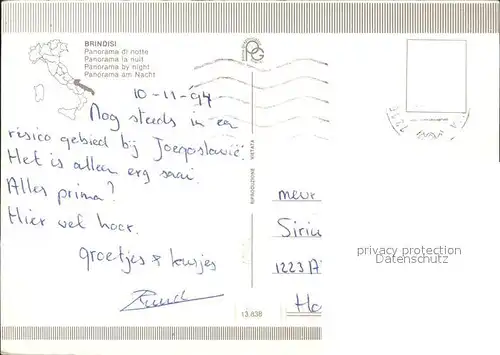 BRINDISI
Panorama di notte
Panorama la nuit
Panorama by night
Panorama am Nacht
10-11-'94
Nog steeds in een
risico gebied bij Joegoslavië.
Het is alleen erg saai.
Alles prima?
Hier wel hoor.
groetjes & kusjes
RIPRODUZIONE VIETATA
mevr
Sirius
1223 A
Ho
13.838
privacy protection
Datenschutz